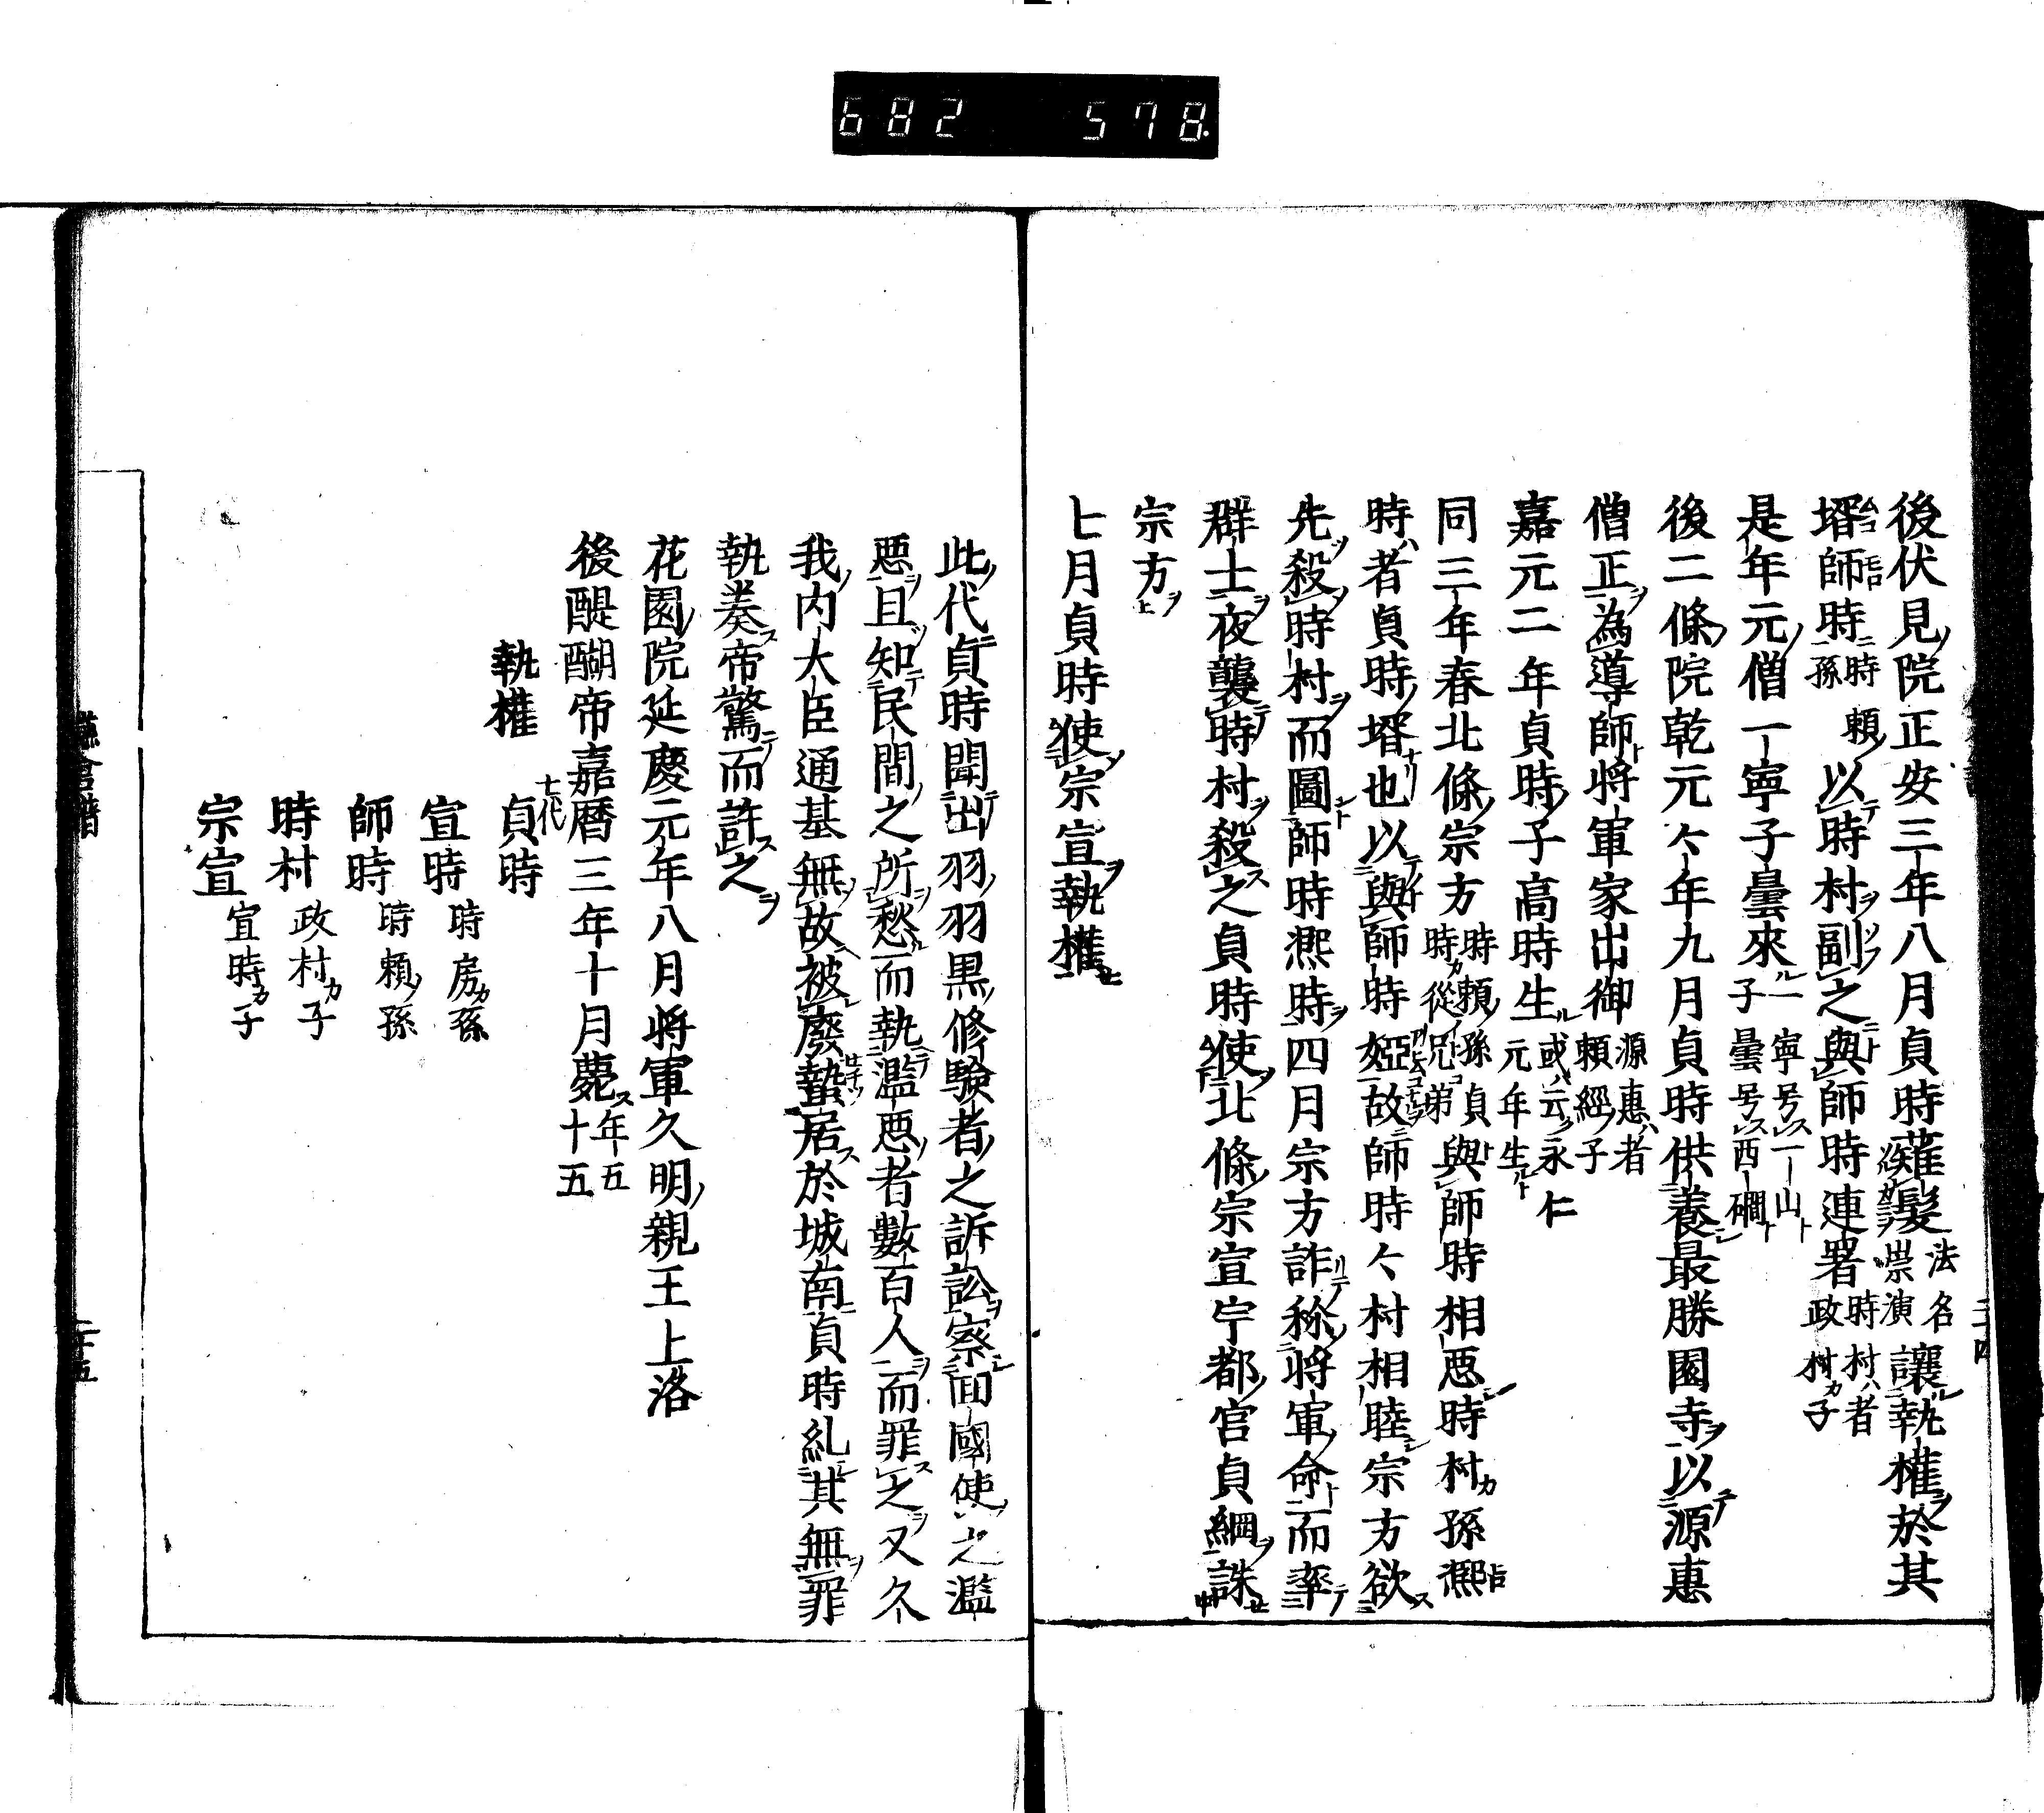 682 578.
後伏見院正安三年八月貞時薙髮法名崇演讓執權於其
壻師時時頼孫以時村副之與師時連署時村者政村子
是年元僧一寧子曇來一寧号一山子曇号西礀
後二條院乾元々年九月貞時供養最勝園寺以源惠
僧正為導師将軍家出御源惠者頼經子
嘉元二年貞時子高時生或云永仁元年生
同三年春北條宗方時頼孫貞時從兄弟與師時相惡時村孫凞
時者貞時壻也以與師時婭故師時々村相睦宗方欲
先殺時村而圖師時凞時四月宗方詐称将軍命而率
群士夜襲時村殺之貞時使北條宗宣宇都宮貞綱誅
宗方
七月貞時使宗宣執權
此代貞時聞出羽羽黒修驗者之訴訟察回國使之濫
惡且知民間之所愁而執濫惡者數百人而罪之又久
我内大臣通基無故被廢蟄居於城南貞時糺其無罪
執奏帝驚而許之
花園院延慶元年八月将軍久明親王上洛
後醍醐帝嘉曆三年十月薨年五十五
執權
七代貞時
宣時時房孫
師時時頼孫
時村政村子
宗宣宣時子